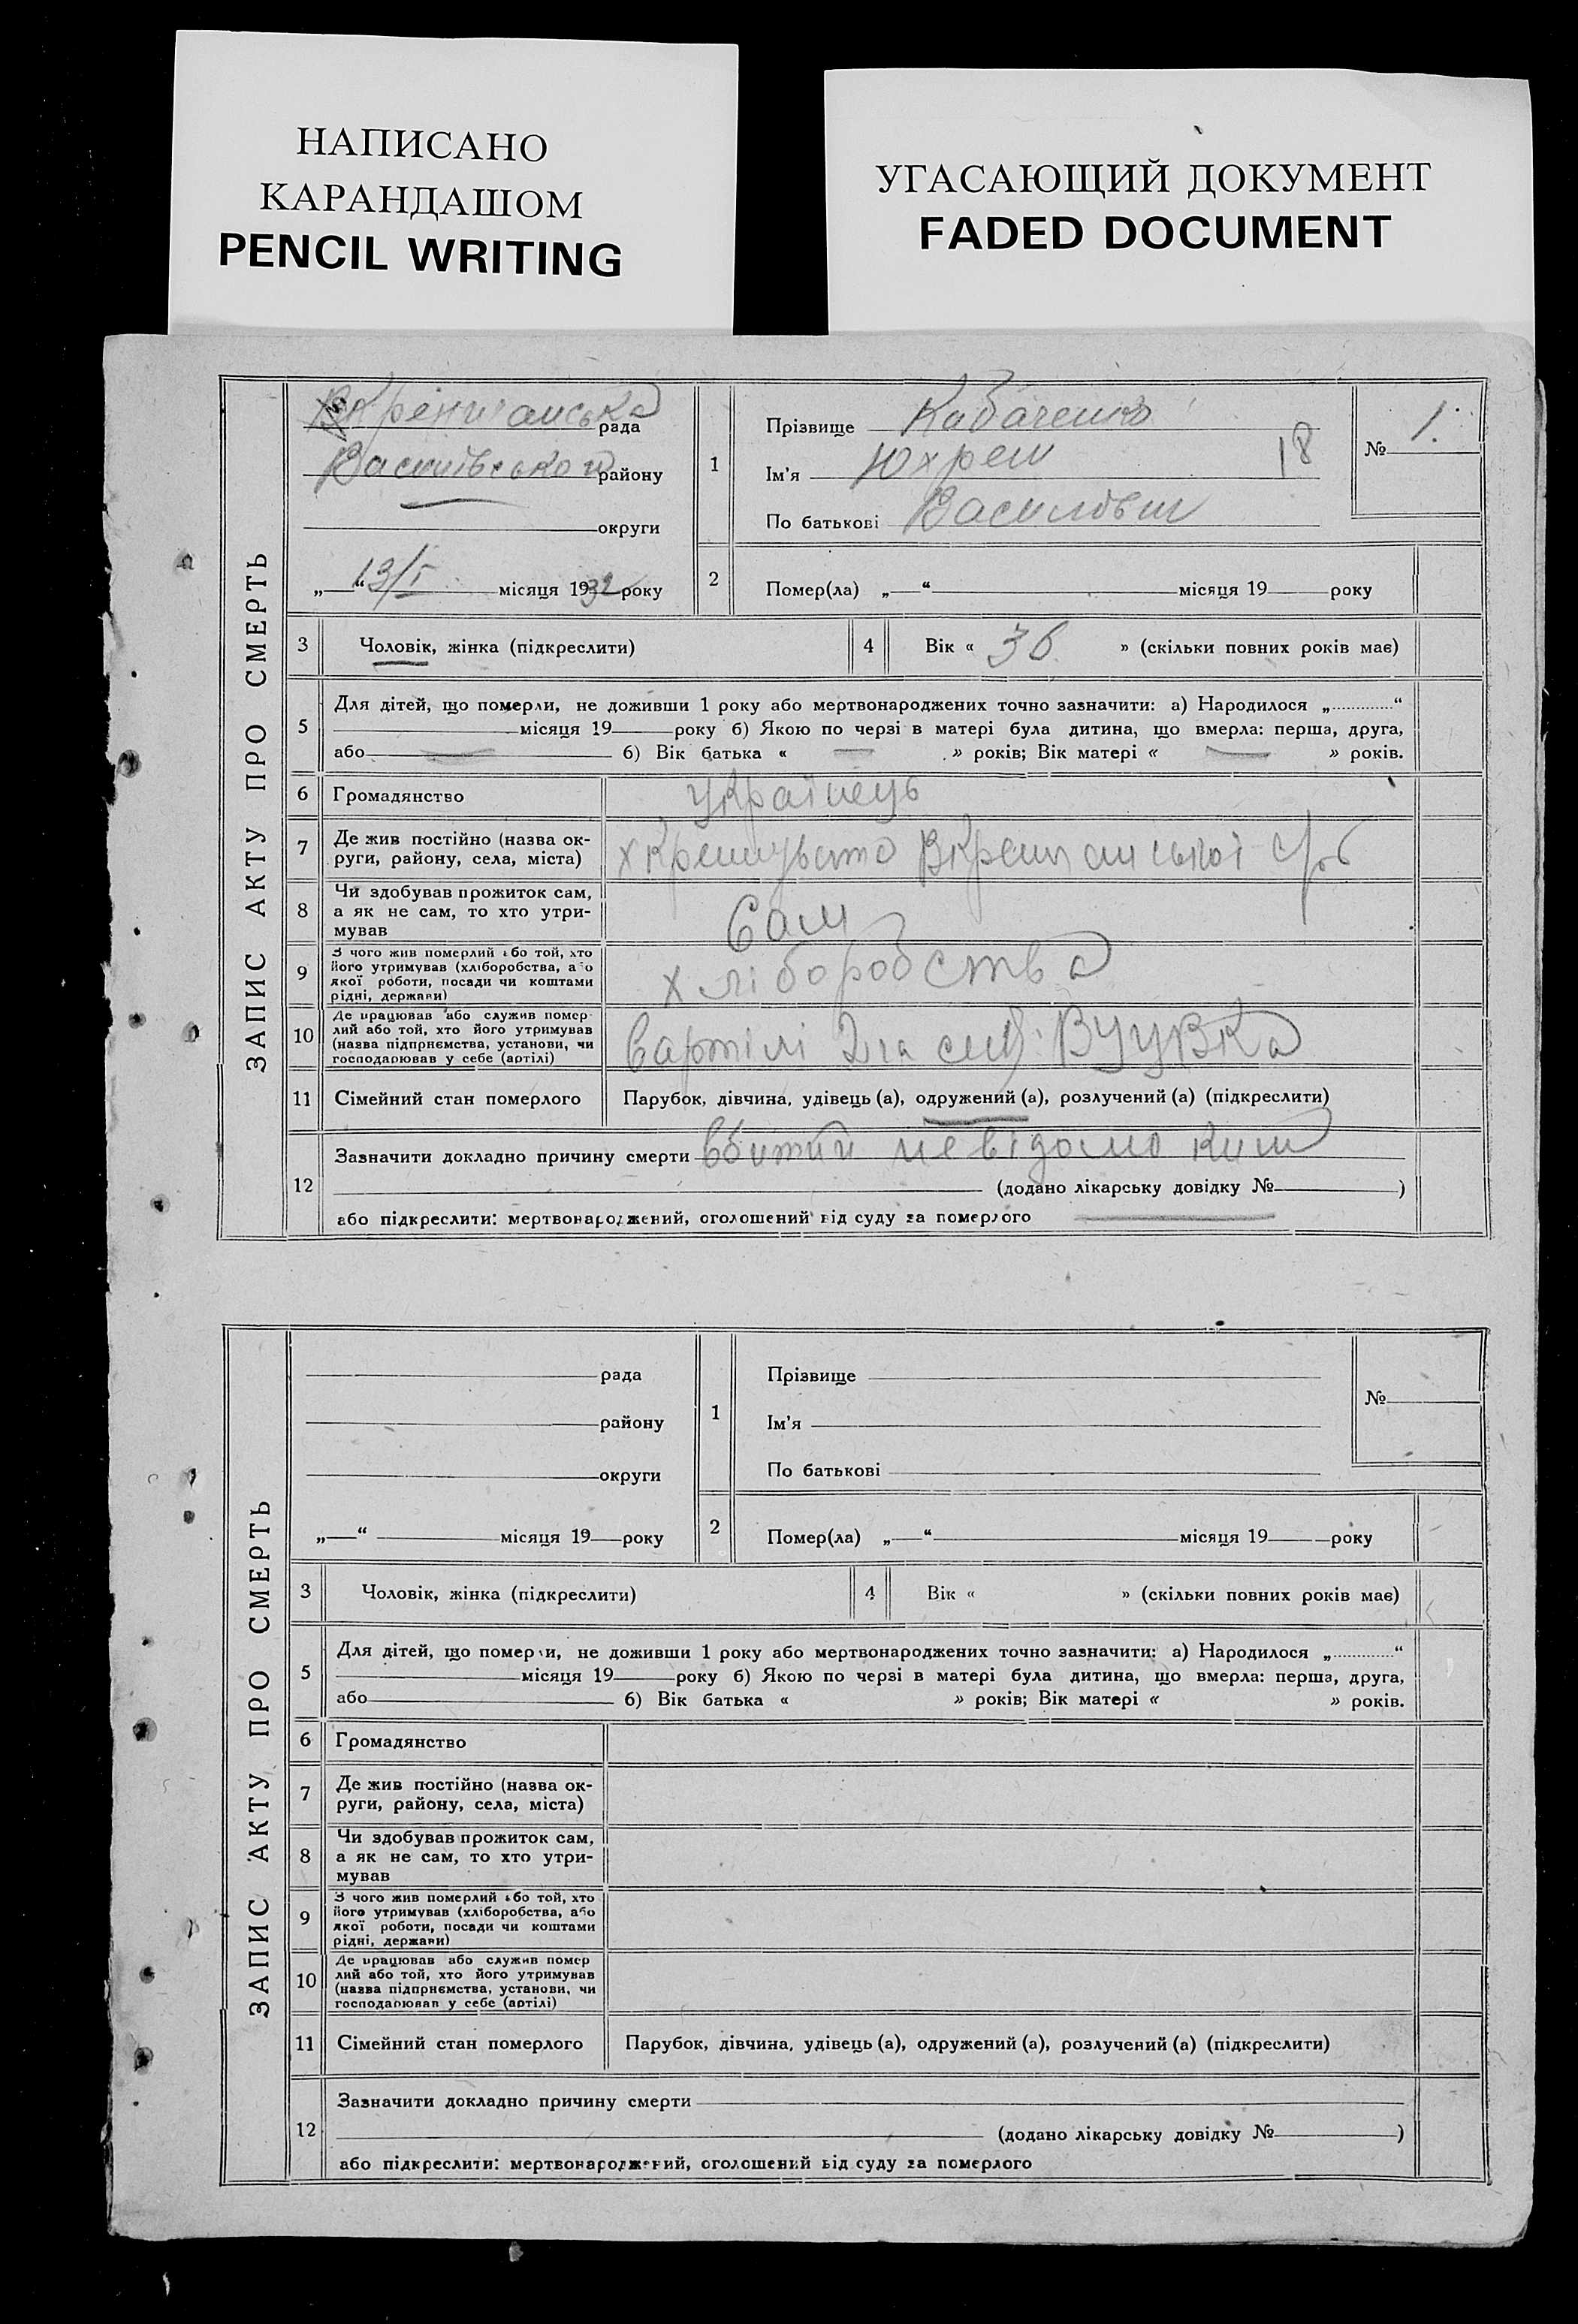 НАПИСАНО
КАРАНДАШОМ
PENCIL WRITING
УГАСАЮЩИЙ ДОКУМЕНТ
FADED DOCUMENT
ЗАПИС АКТУ ПРО СМЕРТЬ
рада
району
округи
„ 13/I “ місяця 1932 року
1
Прізвище Кабаченко
Ім'я Юхрем 18
По батькові Василович
№ 1.
2
Помер(ла) „ “ місяця 19 року
3 Чоловік, жінка (підкреслити)
4 Вік « 36 » (скільки повних років має)
5 Для дітей, що померли, не доживши 1 року або мертвонароджених точно зазначити: а) Народилося „ “
місяця 19 року б) Якою по черзі в матері була дитина, що вмерла: перша, друга,
або б) Вік батька « » років; Вік матері « » років.
6 Громадянство Українець
7 Де жив постійно (назва ок-
руги, району, села, міста)
8 Чи здобував прожиток сам,
а як не сам, то хто утри-
мував
Сам
9 З чого жив померлий або той, хто
його утримував (хліборобства, або
якої роботи, посади чи коштами
рідні, держави)
хліборобства
10 Де працював або служив помер
лий або той, хто його утримував
(назва підпрнємства, установи, чи
господарював у себе (артілі)
вартілі ВУЦВКа
11 Сімейний стан померлого Парубок, дівчина, удівець (а), одружений (а), розлучений (а) (підкреслити)
12 Зазначити докладно причину смерти вбитий невідомо ким
(додано лікарську довідку № )
або підкреслити: мертвонароджений, оголошений від суду за померлого
ЗАПИС АКТУ ПРО СМЕРТЬ
рада
району
округи
„ “ місяця 19 року
1
Прізвище
Ім'я
По батькові
№
2
Помер(ла) „ “ місяця 19 року
3 Чоловік, жінка (підкреслити)
4 Вік « » (скільки повних років має)
5 Для дітей, що померли, не доживши 1 року або мертвонароджених точно зазначити: а) Народилося „ “
місяця 19 року б) Якою по черзі в матері була дитина, що вмерла: перша, друга,
або б) Вік батька « » років; Вік матері « » років.
6 Громадянство
7 Де жив постійно (назва ок-
руги, району, села, міста)
8 Чи здобував прожиток сам,
а як не сам, то хто утри-
мував
9 З чого жив померлий або той, хто
його утримував (хліборобства, або
якої роботи, посади чи коштами
рідні, держави)
10 Де працював або служив помер
лий або той, хто його утримував
(назва підпрнємства, установи, чи
господарював у себе (артілі)
11 Сімейний стан померлого Парубок, дівчина, удівець (а), одружений (а), розлучений (а) (підкреслити)
12 Зазначити докладно причину смерти
(додано лікарську довідку № )
або підкреслити: мертвонароджений, оголошений від суду за померлого